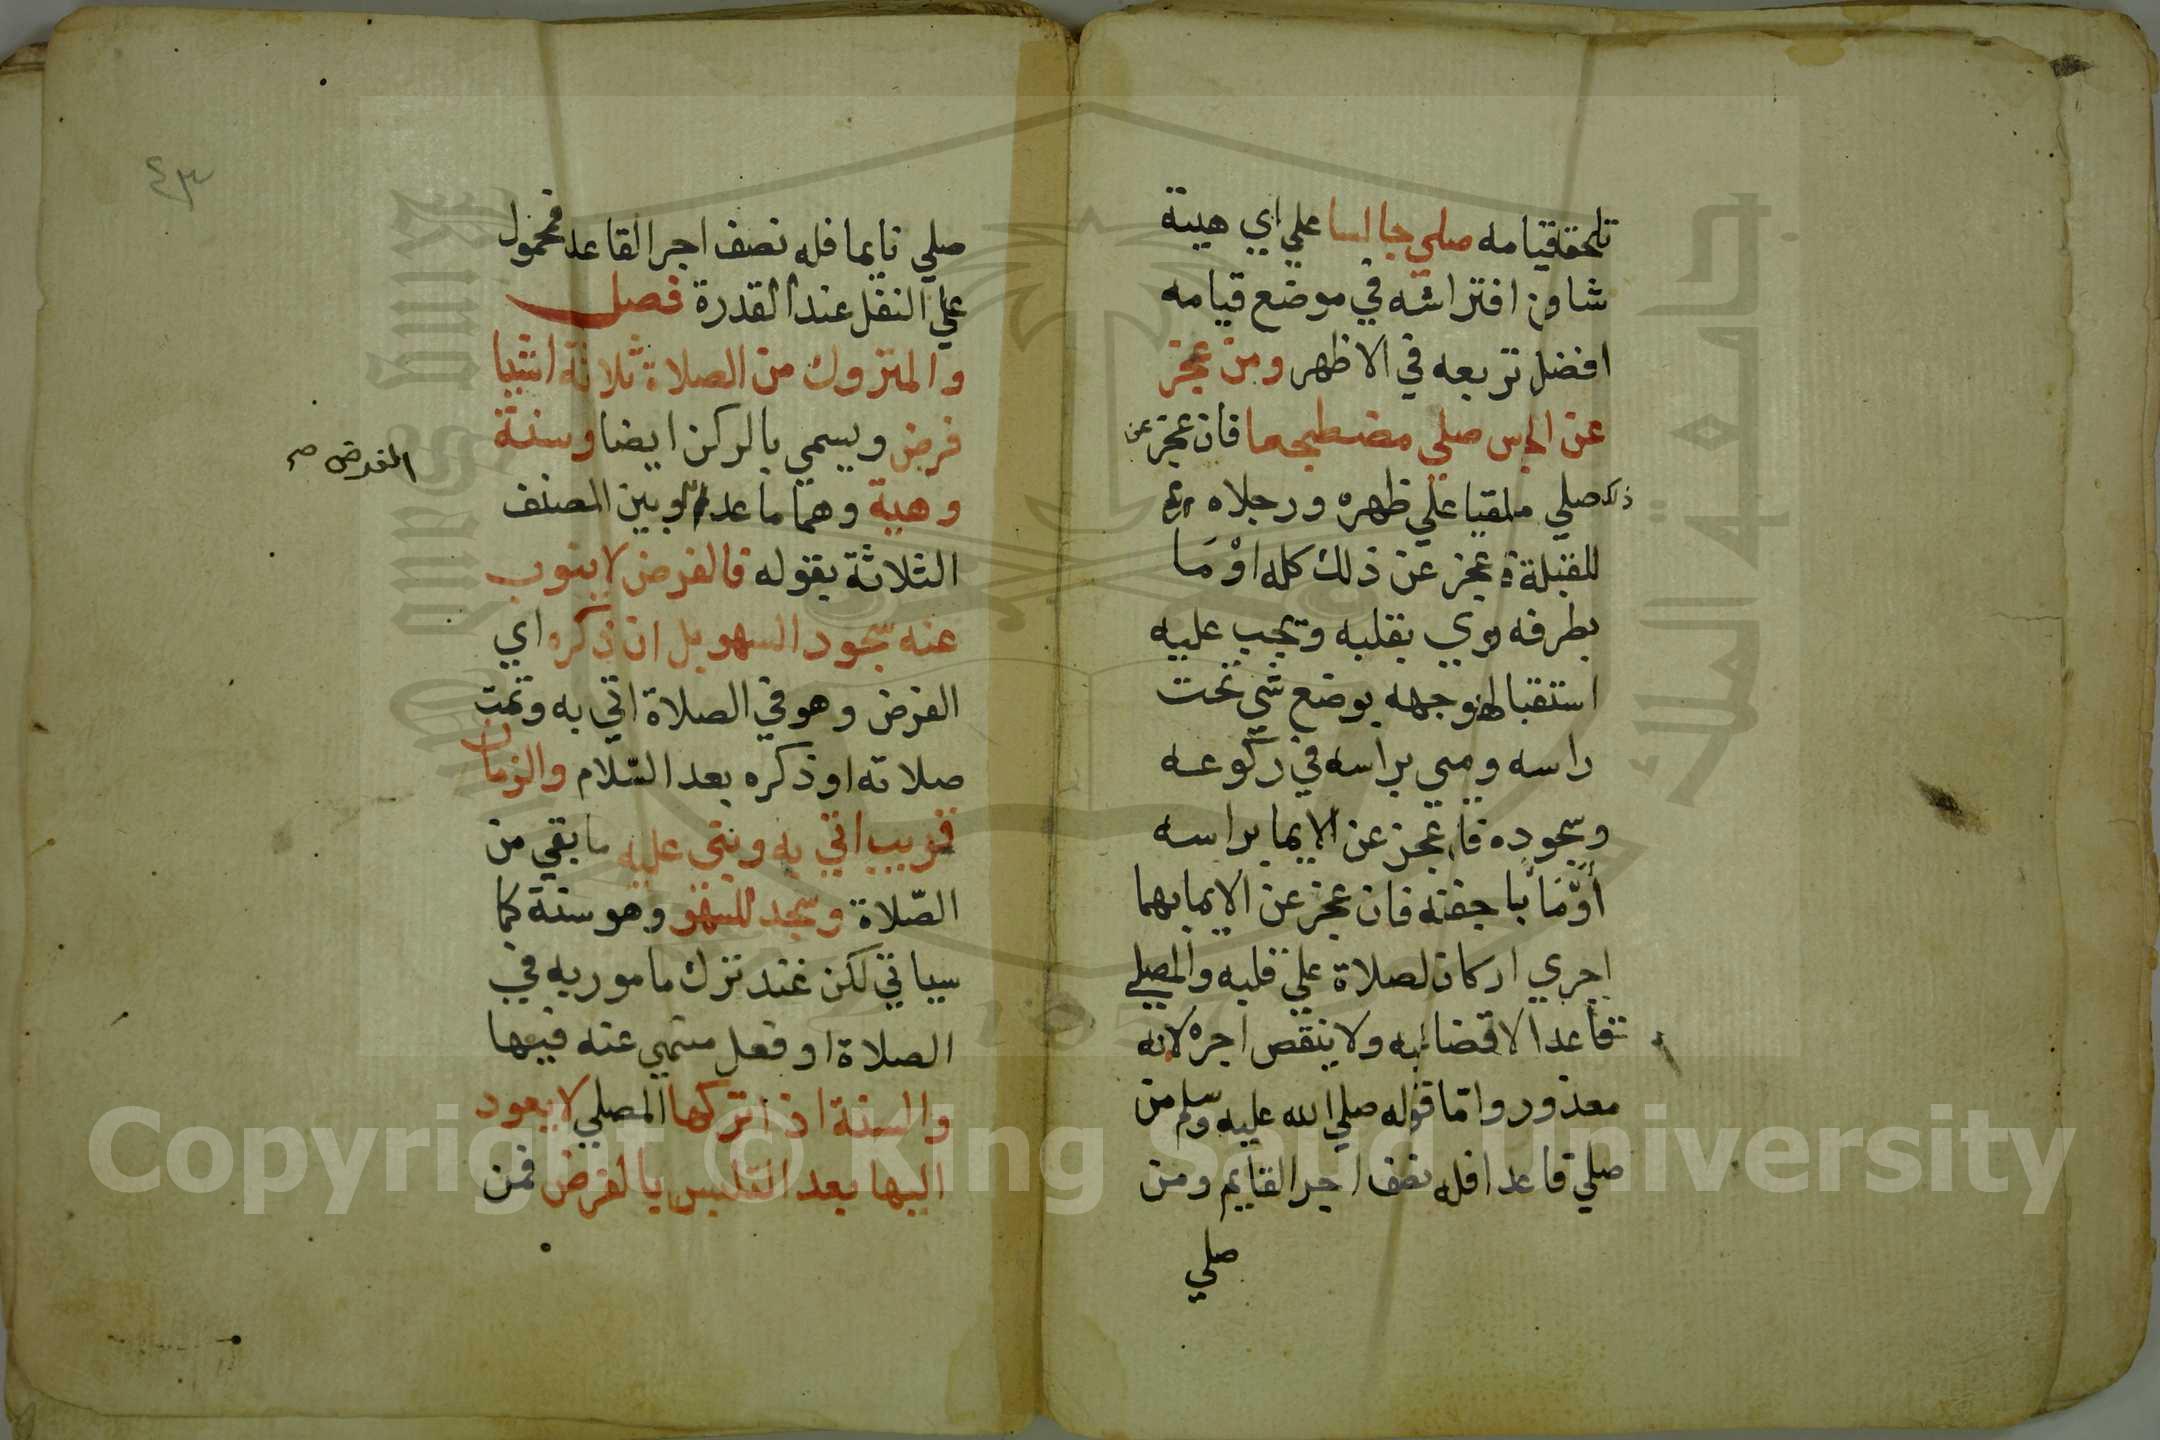 تلحقه قيامه صلي جالسا علي اي هيية
شاون افتراشه في موضع قيامه
افضل تربعه في الاظهر ومن عجز
عن الجلس صلي مضطجعا فان عجز عن
ذلك صلي ملقيا علي ظهره ورجلاه
للقبلة فعجز عن ذلك كله اوْمَا
بطرفه نوي بقلبه وتجب عليه
استقبالها بوجهه بوضع شي تحت
راسه ومي براسه في ركوعه
وسجوده فان عجز عن الايما براسه
أوْمَأ باجفنه فان عجز عن الايما بهما
اجري اركان لصلاة علي قلبه والمصلي
قاعدا لا قضا عليه ولا ينقص اجره لانه
معذور واما قوله صلي الله عليه وسلم من
صلي قاعدا فله نصف اجر القايم ومن
صلي
صلي نايما فله نصف اجر القاعد فمحمول
علي النفل عند القدرة فصل
والمتروك من الصلاة ثلاثة اشيا
فرض ويسمي بالركن ايضا وسنة
وهية وهما ما عدا وبين المصنف
الفرض صح
الثلاثة بقوله فالفرض لا ينوب
عنه سجود السهو بل ان ذكره اي
الفرض وهو في الصلاة اتي به وتمت
صلاته او ذكره بعد السّلام والزمان
قريب اتي به وبني عليه ما بقي من
الصّلاة وسجد للسهو وهو سنة كما
سياتي لكن عند ترك مامور به في
الصلاة او فعل منهي عنه فيها
والسنة اذا تركها المصلي لا يعود
اليها بعد التلبس بالفرض فمن
٤٣
Copyright © King Saud University
جامعة الملك سعود
King Saud University
1957